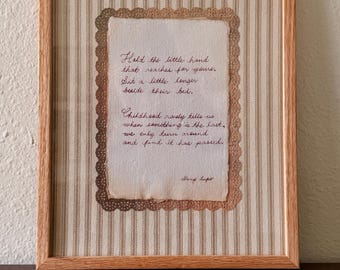 Hold the little hand
that reaches for yours.
Sit a little longer
beside their bed.
Childhood rarely tells us
when something is the last,
we only turn around
and find it has passed.